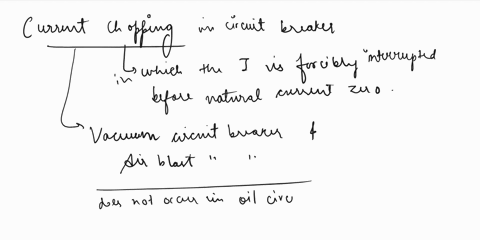 Current Chopping in circuit breaker
in which the I is forcibly interrupted
before natural current zero.
Vacuum circuit breaker &
Air blast " "
does not occur in oil circ